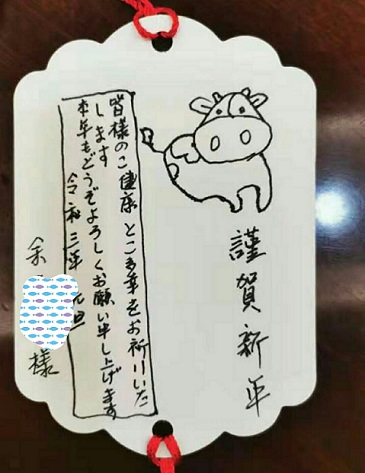 謹賀新年
皆様のご健康とご多幸をお祈りいた
します
本年もどうぞよろしくお願い申し上げます
令和三年 元旦
余
様